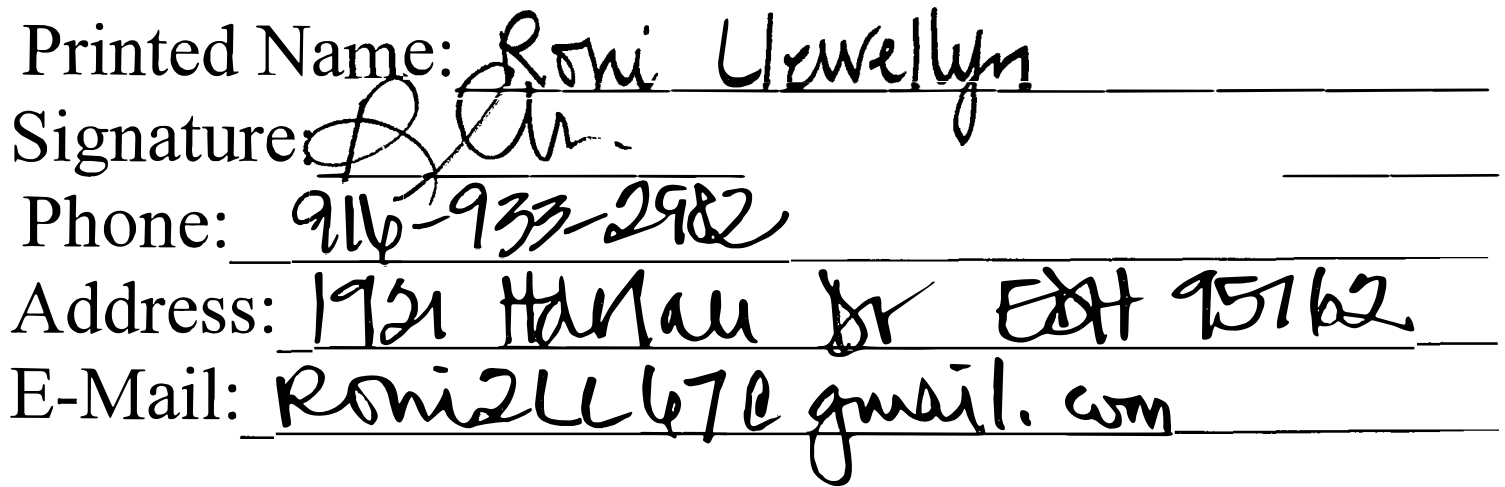 Printed Name: Roni Llewellyn
Signature:
Phone: 916-933-2982
Address: 1921 Harlan Dr EDH 95762
E-Mail: Roni2LL67@gmail.com